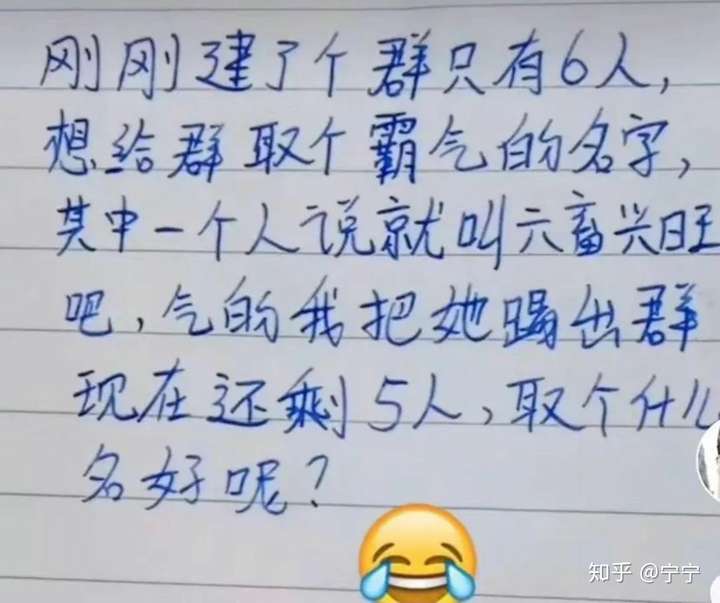 刚刚建了个群只有6人,
想给群取个霸气的名字,
其中一个人说就叫六畜兴旺
吧,气的我把她踢出群
现在还剩5人,取个什么
名好呢?
知乎 @宁宁